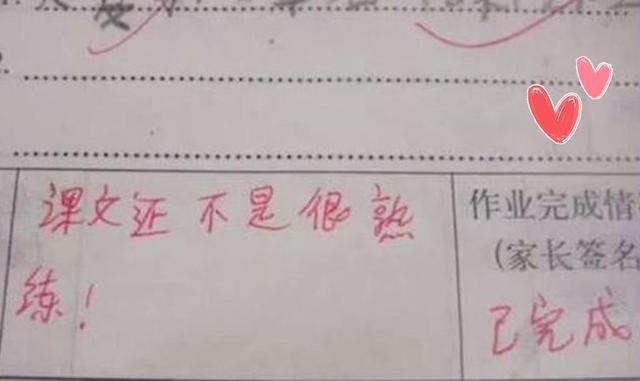 课文还不是很熟
练!
作业完成情
(家长签名
已完成